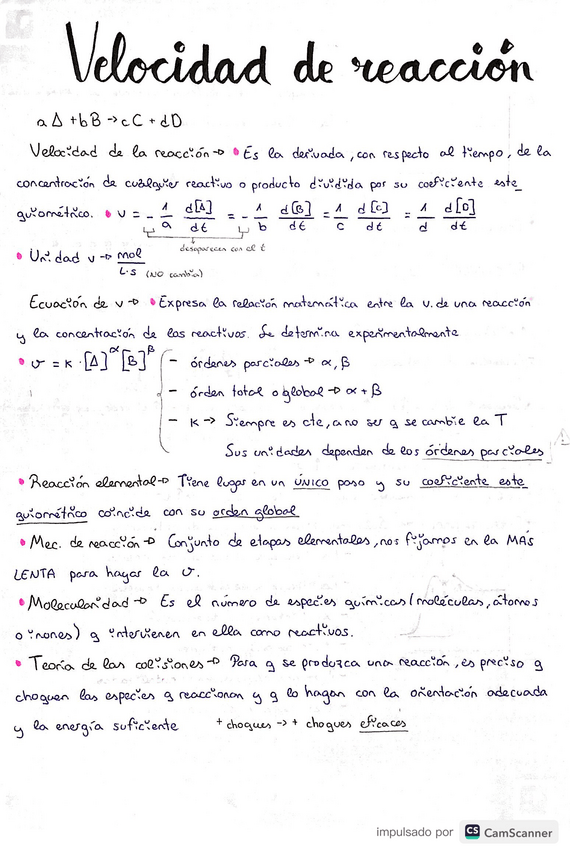 Velocidad de reacción
aA + bB → cC + dD
Velocidad de la reacción → • Es la derivada, con respecto al tiempo, de la
concentración de cualquier reactivo o producto dividida por su coeficiente este_
quiométrico. • v = - 1/a d[A]/dt = - 1/b d[B]/dt = 1/c d[C]/dt = 1/d d[D]/dt
desaparecen con el t
• Unidad v → mol/L·s (NO cambia)
Ecuación de v → • Expresa la relación matemática entre la v. de una reacción
y la concentración de los reactivos. Se determina experimentalmente
• v = K · [A]^α [B]^β
- órdenes parciales → α, β
- órden total o global → α + β
- K → Siempre es cte, a no ser q se cambie la T
Sus unidades dependen de los órdenes parciales
• Reacción elemental → Tiene lugar en un ÚNICO paso y su coeficiente este_
quiométrico coincide con su orden global
• Mec. de reacción → Conjunto de etapas elementales, nos fijamos en la MÁS
LENTA para hayar la v.
• Molecularidad → Es el número de especies químicas (moléculas, átomos
o iones) q intervienen en ella como reactivos.
• Teoría de las colisiones → Para q se produzca una reacción, es preciso q
choquen las especies q reaccionan y q lo hagan con la orientación adecuada
y la energía suficiente + choques → + choques eficaces
impulsado por CS CamScanner